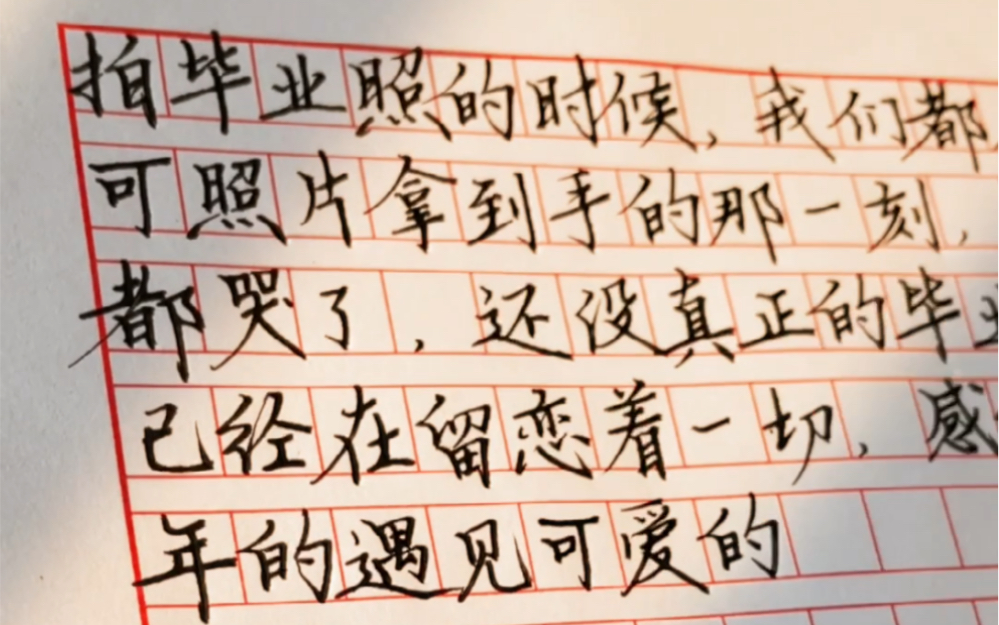 拍毕业照的时候，我们都
可照片拿到手的那一刻，
都哭了，还没真正的毕业
已经在留恋着一切，感
年的遇见可爱的